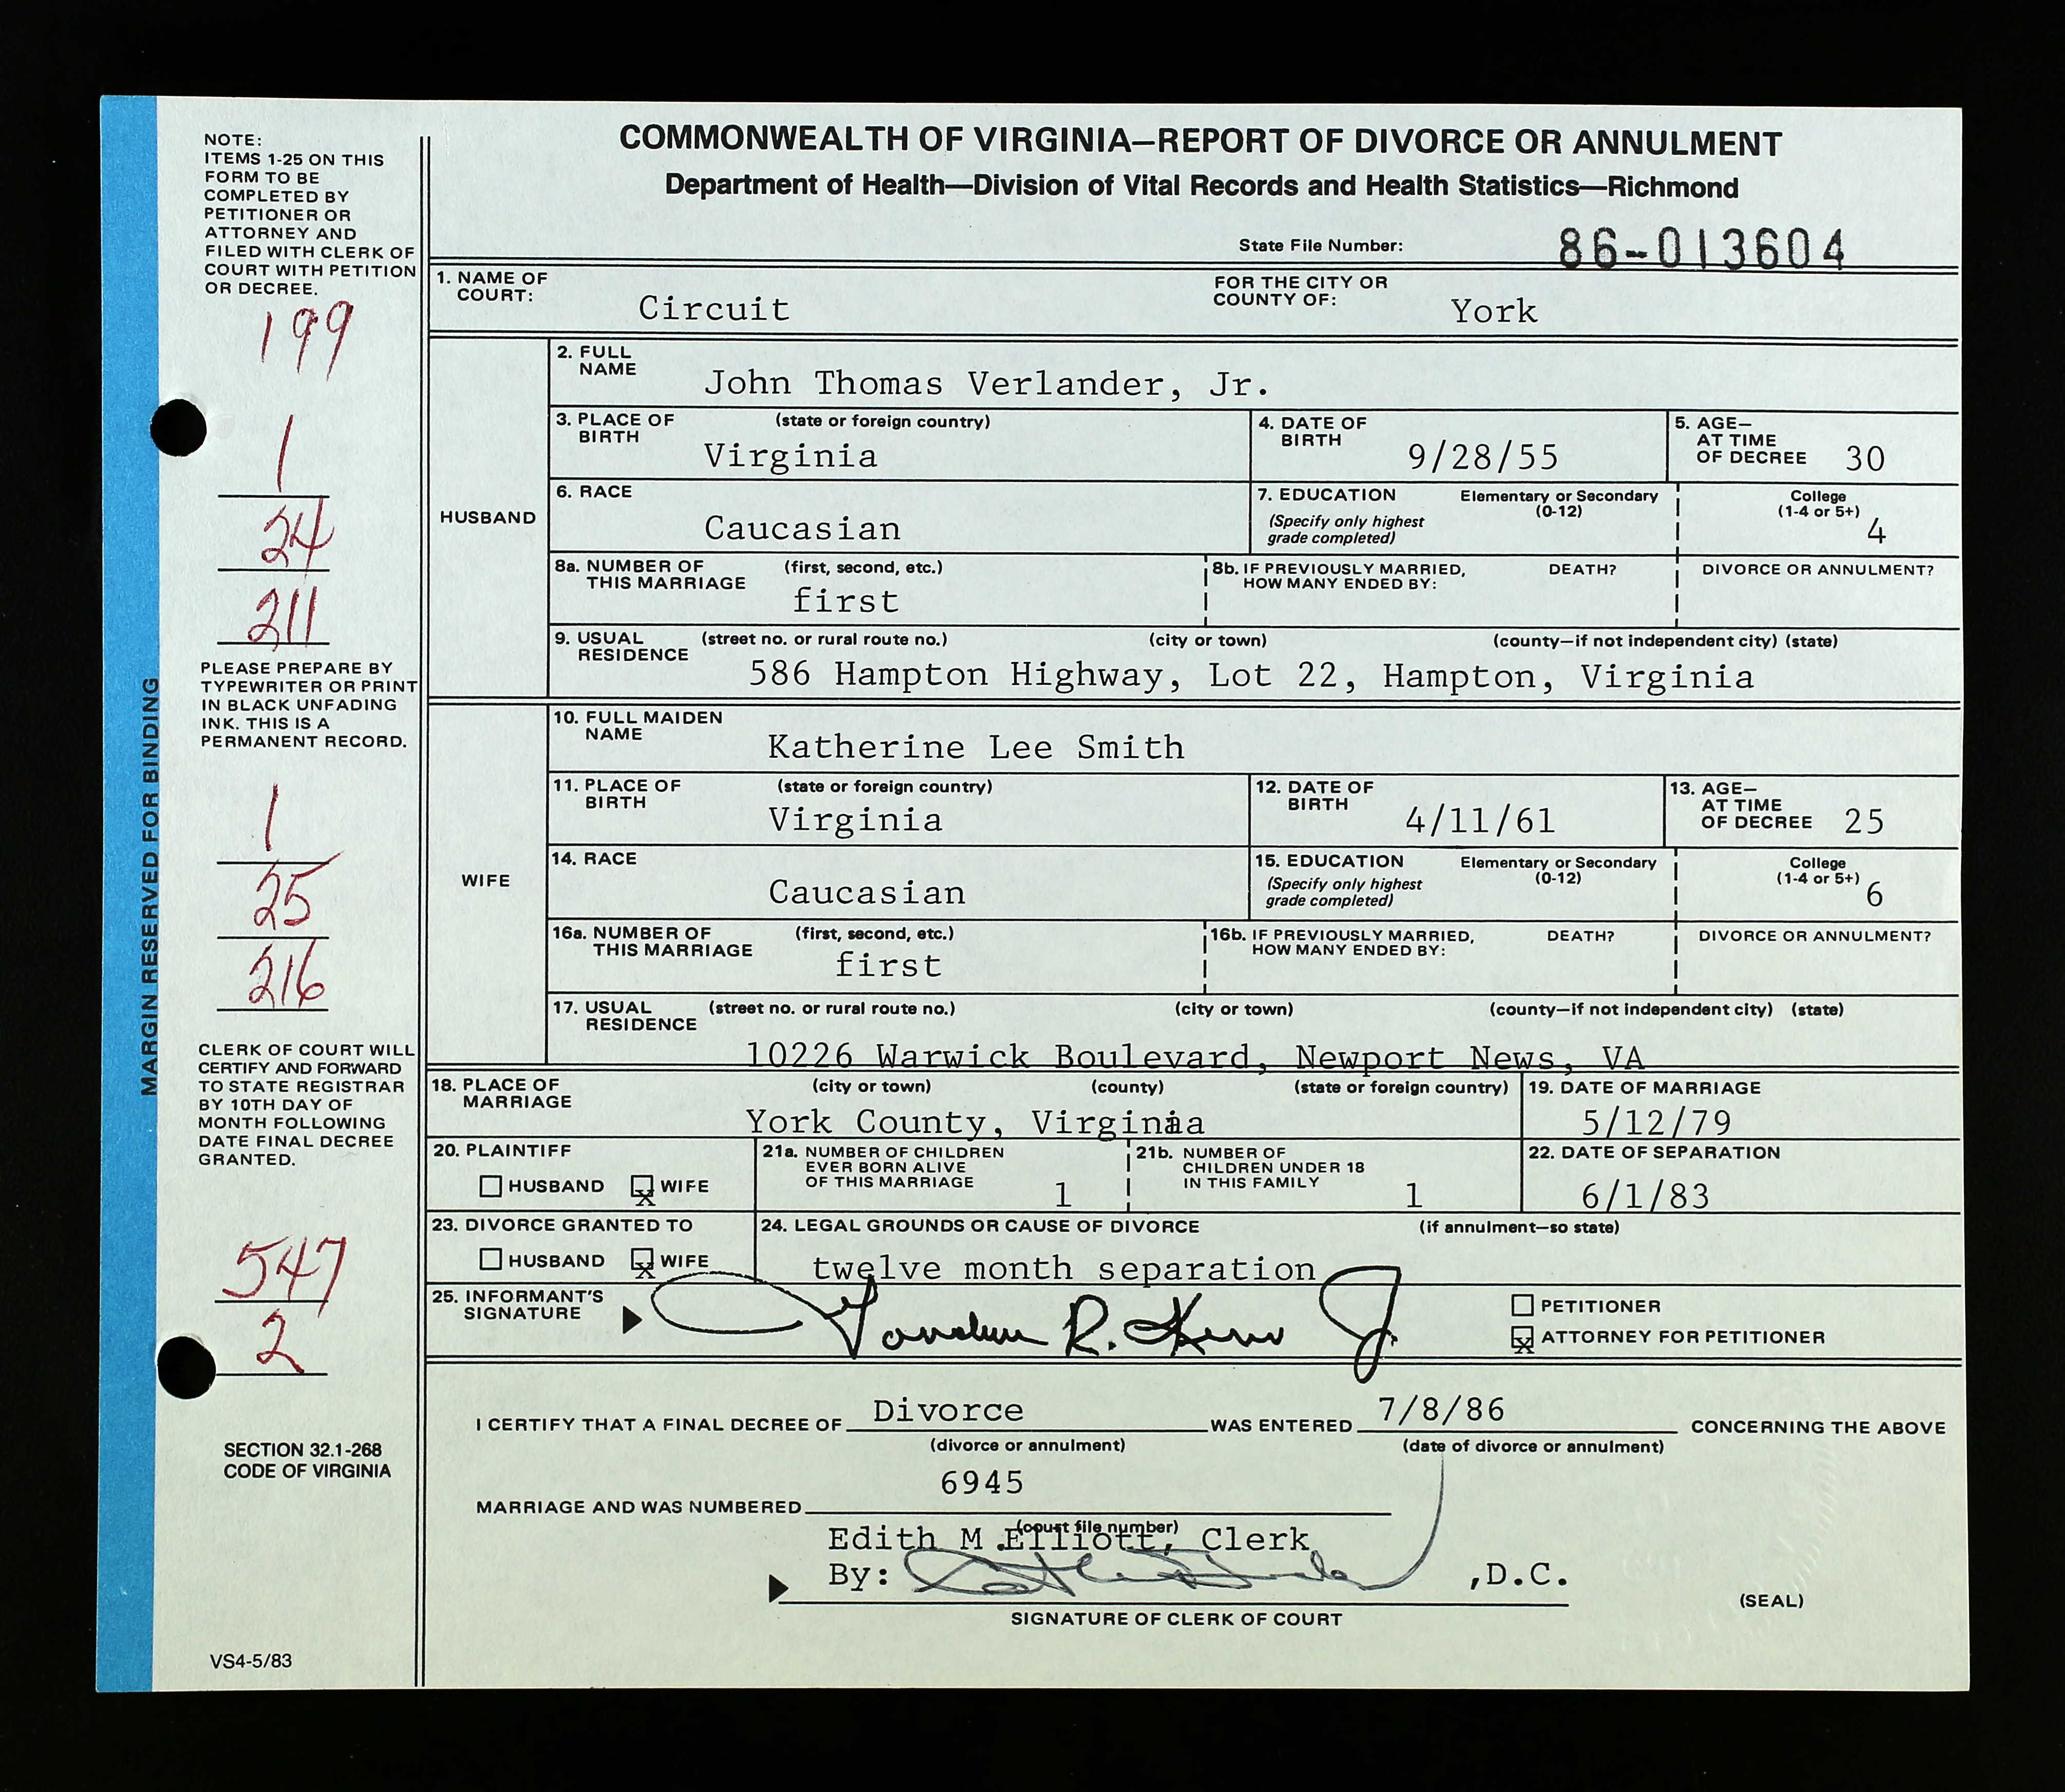 COMMONWEALTH OF VIRGINIA—REPORT OF DIVORCE OR ANNULMENT
Department of Health—Division of Vital Records and Health Statistics—Richmond
State File Number: 86-013604
NOTE:
ITEMS 1-25 ON THIS
FORM TO BE
COMPLETED BY
PETITIONER OR
ATTORNEY AND
FILED WITH CLERK OF
COURT WITH PETITION
OR DECREE.
199
1
24
211
PLEASE PREPARE BY
TYPEWRITER OR PRINT
IN BLACK UNFADING
INK. THIS IS A
PERMANENT RECORD.
1
25
216
CLERK OF COURT WILL
CERTIFY AND FORWARD
TO STATE REGISTRAR
BY 10TH DAY OF
MONTH FOLLOWING
DATE FINAL DECREE
GRANTED.
547
2
SECTION 32.1-268
CODE OF VIRGINIA
VS4-5/83
MARGIN RESERVED FOR BINDING
1. NAME OF
COURT: Circuit
FOR THE CITY OR
COUNTY OF: York
HUSBAND
2. FULL
NAME John Thomas Verlander, Jr.
3. PLACE OF
BIRTH (state or foreign country)
Virginia
4. DATE OF
BIRTH 9/28/55
5. AGE—
AT TIME
OF DECREE 30
6. RACE
Caucasian
7. EDUCATION
(Specify only highest
grade completed)
Elementary or Secondary
(0-12)
College
(1-4 or 5+) 4
8a. NUMBER OF
THIS MARRIAGE (first, second, etc.)
first
8b. IF PREVIOUSLY MARRIED,
HOW MANY ENDED BY:
DEATH?
DIVORCE OR ANNULMENT?
9. USUAL
RESIDENCE (street no. or rural route no.) (city or town) (county—if not independent city) (state)
586 Hampton Highway, Lot 22, Hampton, Virginia
WIFE
10. FULL MAIDEN
NAME Katherine Lee Smith
11. PLACE OF
BIRTH (state or foreign country)
Virginia
12. DATE OF
BIRTH 4/11/61
13. AGE—
AT TIME
OF DECREE 25
14. RACE
Caucasian
15. EDUCATION
(Specify only highest
grade completed)
Elementary or Secondary
(0-12)
College
(1-4 or 5+) 6
16a. NUMBER OF
THIS MARRIAGE (first, second, etc.)
first
16b. IF PREVIOUSLY MARRIED,
HOW MANY ENDED BY:
DEATH?
DIVORCE OR ANNULMENT?
17. USUAL
RESIDENCE (street no. or rural route no.) (city or town) (county—if not independent city) (state)
10226 Warwick Boulevard, Newport News, VA
18. PLACE OF
MARRIAGE (city or town) (county) (state or foreign country)
York County, Virginia
19. DATE OF MARRIAGE
5/12/79
20. PLAINTIFF
HUSBAND x WIFE
21a. NUMBER OF CHILDREN
EVER BORN ALIVE
OF THIS MARRIAGE 1
21b. NUMBER OF
CHILDREN UNDER 18
IN THIS FAMILY 1
22. DATE OF SEPARATION
6/1/83
23. DIVORCE GRANTED TO
HUSBAND x WIFE
24. LEGAL GROUNDS OR CAUSE OF DIVORCE (if annulment—so state)
twelve month separation
25. INFORMANT'S
SIGNATURE R.
PETITIONER
x ATTORNEY FOR PETITIONER
I CERTIFY THAT A FINAL DECREE OF Divorce WAS ENTERED 7/8/86 CONCERNING THE ABOVE
(divorce or annulment) (date of divorce or annulment)
MARRIAGE AND WAS NUMBERED 6945
(court file number)
Edith M.Elliott, Clerk
By: ,D.C.
SIGNATURE OF CLERK OF COURT
(SEAL)